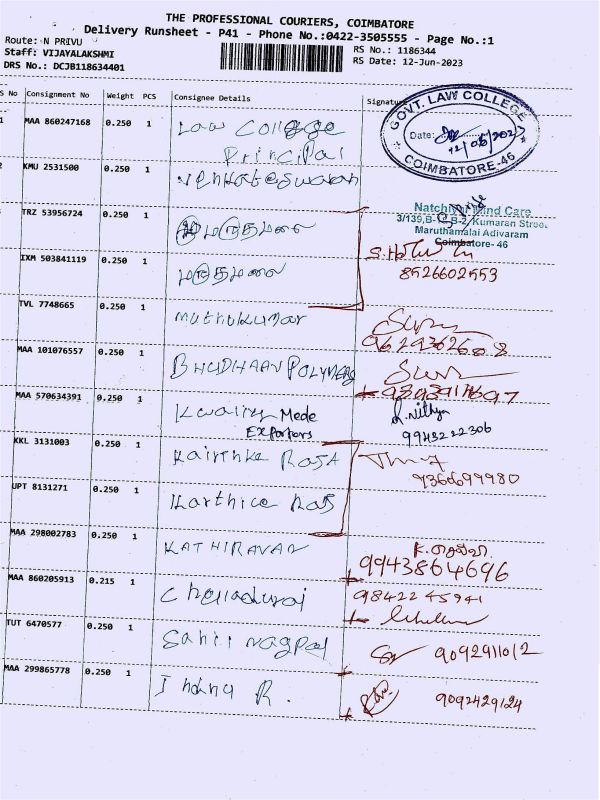 THE PROFESSIONAL COURIERS, COIMBATORE
Delivery Runsheet - P41 - Phone No.:0422-3505555 - Page No.:1
Route: N PRIVU
Staff: VIJAYALAKSHMI
DRS No.: DCJB118634401
RS No.: 1186344
RS Date: 12-Jun-2023
S No Consignment No Weight PCS Consignee Details Signature
1 MAA 860247168 0.250 1 Law College
Principal
GOVT. LAW COLLEGE
Date:
COIMBATORE-46
2 KMU 2531500 0.250 1 Venkateswaran
Natchiyar Mind Care
3/139,B- B-2, Kumaran Street
Maruthamalai Adivaram
Coimbatore- 46
TRZ 53956724 0.250 1 மருதமலை
IXM 503841119 0.250 1 மருதமலை
8526602553
TVL 7748665 0.250 1 Muthukumar
9629362608
MAA 101076557 0.250 1 BHUDHAAN POLYMERS
MAA 570634391 0.250 1 Kwality Mede
Exporters
R. Nithya
9943222306
KKL 3131003 0.250 1 RAJA
9366699980
UPT 8131271 0.250 1 Karthice Raj
MAA 298002783 0.250 1 KATHIRAVAN
9943864696
MAA 860205913 0.215 1 Chelladurai
98422 45941
TUT 6470577 0.250 1 Sahil Nagpal
9092911012
MAA 299865778 0.250 1 Indhu R.
9092429124